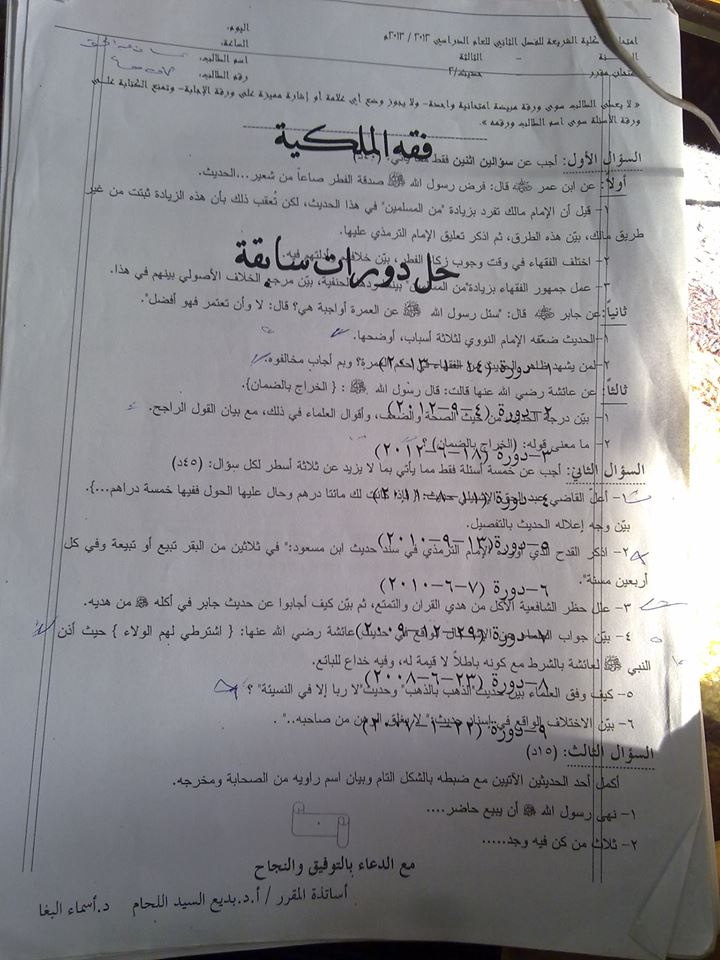 امتحان كلية الشريعة للفصل الثاني للعام الدراسي ٢٠١٢ / ٢٠١٣م
اليوم:
الساعة:
السنة - الثالثة
اسم الطالب:
امتحان مقرر - حديث/٢
رقم الطالب:
« لا يعطى الطالب سوى ورقة مبيضة امتحانية واحدة- ولا يجوز وضع أي علامة أو إشارة مميزة على ورقة الإجابة- وتمنع الكتابة على
ورقة الأسئلة سوى اسم الطالب ورقمه ».
فقه الملكية
السؤال الأول: أجب عن سؤالين اثنين فقط مما يأتي:
أولاً: عن ابن عمر قال: فرض رسول الله ﷺ صدقة الفطر صاعاً من شعير...الحديث.
١- قيل أن الإمام مالك تفرد بزيادة "من المسلمين" في هذا الحديث، لكن تُعقب ذلك بأن هذه الزيادة ثبتت من غير
طريق مالك، بيّن هذه الطرق، ثم اذكر تعليق الإمام الترمذي عليها.
حل دورات سابقة
٢- اختلف الفقهاء في وقت وجوب زكاة الفطر، بيّن خلافهم وأدلتهم فيه.
٣- عمل جمهور الفقهاء بزيادة"من المسلمين" بينما ردها الحنفية، بيّن مرجع الخلاف الأصولي بينهم في هذا.
ثانياً: عن جابر قال: "سئل رسول الله ﷺ عن العمرة أواجبة هي؟ قال: لا وأن تعتمر فهو أفضل".
١-الحديث ضعّفه الإمام النووي لثلاثة أسباب، أوضحها.
٢-لمن يشهد ظاهر الحديث من الفقهاء في حكم العمرة؟ وبم أجاب مخالفوه.
١-دورة
ثالثاً: عن عائشة رضي الله عنها قالت: قال رسول الله ﷺ : {الخراج بالضمان}.
١- بيّن درجة الحديث من حيث الصحة والضعف، وأقوال العلماء في ذلك، مع بيان القول الراجح.
٢-دورة (٤-٩-٢٠١٢)
٢- ما معنى قوله: (الخراج بالضمان) ؟
٣-دورة (١٨-٦-٢٠١٢)
السؤال الثاني: أجب عن خمسة أسئلة فقط مما يأتي بما لا يزيد عن ثلاثة أسطر لكل سؤال: (٤٥د)
١- أعلّ القاضي حديث: {إذا كانت لك مائتا درهم وحال عليها الحول ففيها خمسة دراهم...}.
بيّن وجه إعلاله الحديث بالتفصيل.
٥-دورة (١٣-٩-٢٠١٠)
٢- اذكر القدح الذي أورده الإمام الترمذي في سند حديث ابن مسعود:" في ثلاثين من البقر تبيع أو تبيعة وفي كل
أربعين مسنة".
٦-دورة (٧-٦-٢٠١٠)
٣- علل حظر الشافعية الأكل من هدي القران والتمتع، ثم بيّن كيف أجابوا عن حديث جابر في أكله ﷺ من هديه.
٤- بيّن جواب الواقع في حديث عائشة رضي الله عنها: { اشترطي لهم الولاء } حيث أذن
النبي ﷺ لعائشة بالشرط مع كونه باطلاً لا قيمة له، وفيه خداع للبائع.
٨-دورة (٢٣-٦-٢٠٠٨)
٥- كيف وفق العلماء بين حديث"الذهب بالذهب" وحديث"لا ربا إلا في النسيئة" ؟
٦- بيّن الاختلاف الواقع في إسناد حديث:" لا يغلق الرهن من صاحبه.." .
٩-دورة
السؤال الثالث: (١٥د)
أكمل أحد الحديثين الآتيين مع ضبطه بالشكل التام وبيان اسم راويه من الصحابة ومخرجه.
١- نهى رسول الله ﷺ أن يبيع حاضر....
٢- ثلاث من كن فيه وجد.....
مع الدعاء بالتوفيق والنجاح
أساتذة المقرر / أ.د.بديع السيد اللحام د.أسماء البغا